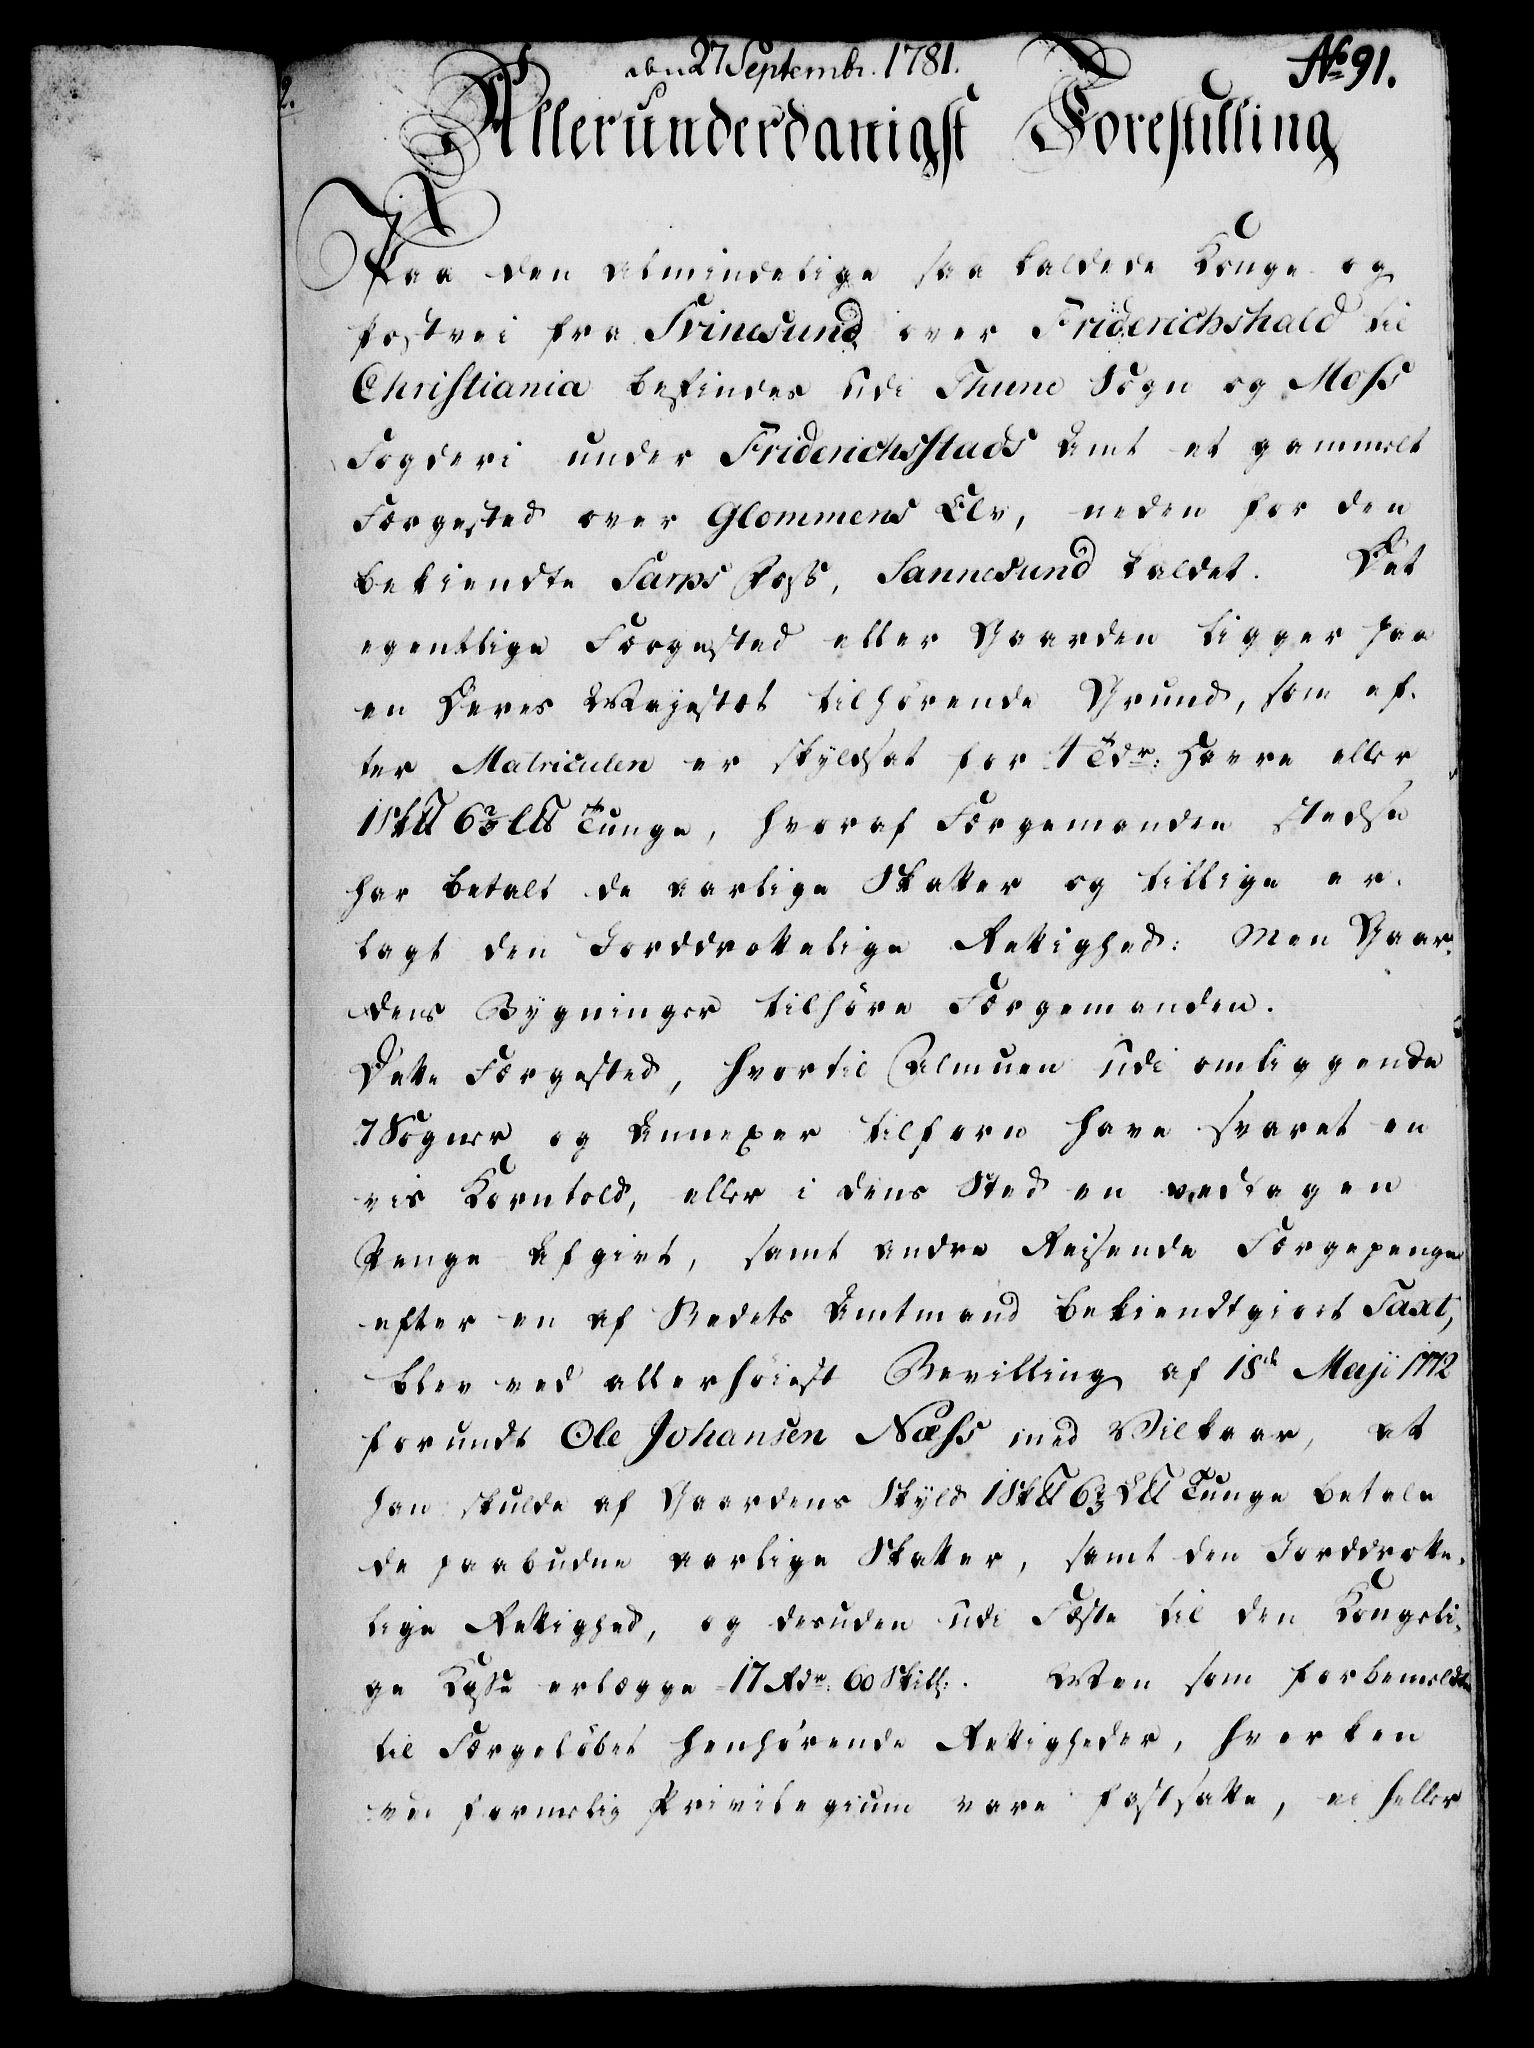 den 27 Septembr. 1781.
No 91.
Allerunderdanigst Forestilling
Paa den almindelige saa kaldede Konge og
Postvei fra Svinesund over Friderichshald til
Christiania befindes udi Thune Sogn og Moss
Fogderi under Friderichsstads Amt et gammelt
Færgested over Glommens Elv, neden for den
bekiendte Sarps Foss, Sannesund kaldet. Det
egentlige Færgested eller Gaarden ligger paa
en Deres Majestæt tilhörende Grund, som ef-
ter Matriculen er skyldsat for 4 Tdr: Havre eller
1 Sk℔ 6⅔ L℔ Tunge, hvoraf Færgemanden stedse
har betalt de aarlige Skatter og tillige er-
lagt den Jorddrottelige Rettighed: Men Gaar-
dens Bygninger tilhöre Færgemanden.
Dette Færgested, hvortil Almuen udi omliggende
7 Sogner og Annexer tilforn have svaret en
vis Korntold, eller i dens Sted en vedtagen
Penge Afgivt, samt andre Reisende Færgepenge
efter en af Stedets Amtmand bekiendtgiort Taxt,
blev ved allerhöiest Bevilling af 18de Maji 1772
forundt Ole Johansen Næss med Vilkaar, at
han skulde af Gaardens Skyld 1 Sk℔ 6⅔ L℔ Tunge betale
de paabudne aarlige Skatter, samt den Jorddrotte-
lige Rettighed, og desuden udi Fæste til den Kongeli-
ge Casse erlægge 17 Rdr: 60 Skill:. Men som forbemeldte
til Færgelöbet henhörende Rettigheder, hverken
ved formelig Privilegium vare fastsatte, ei heller